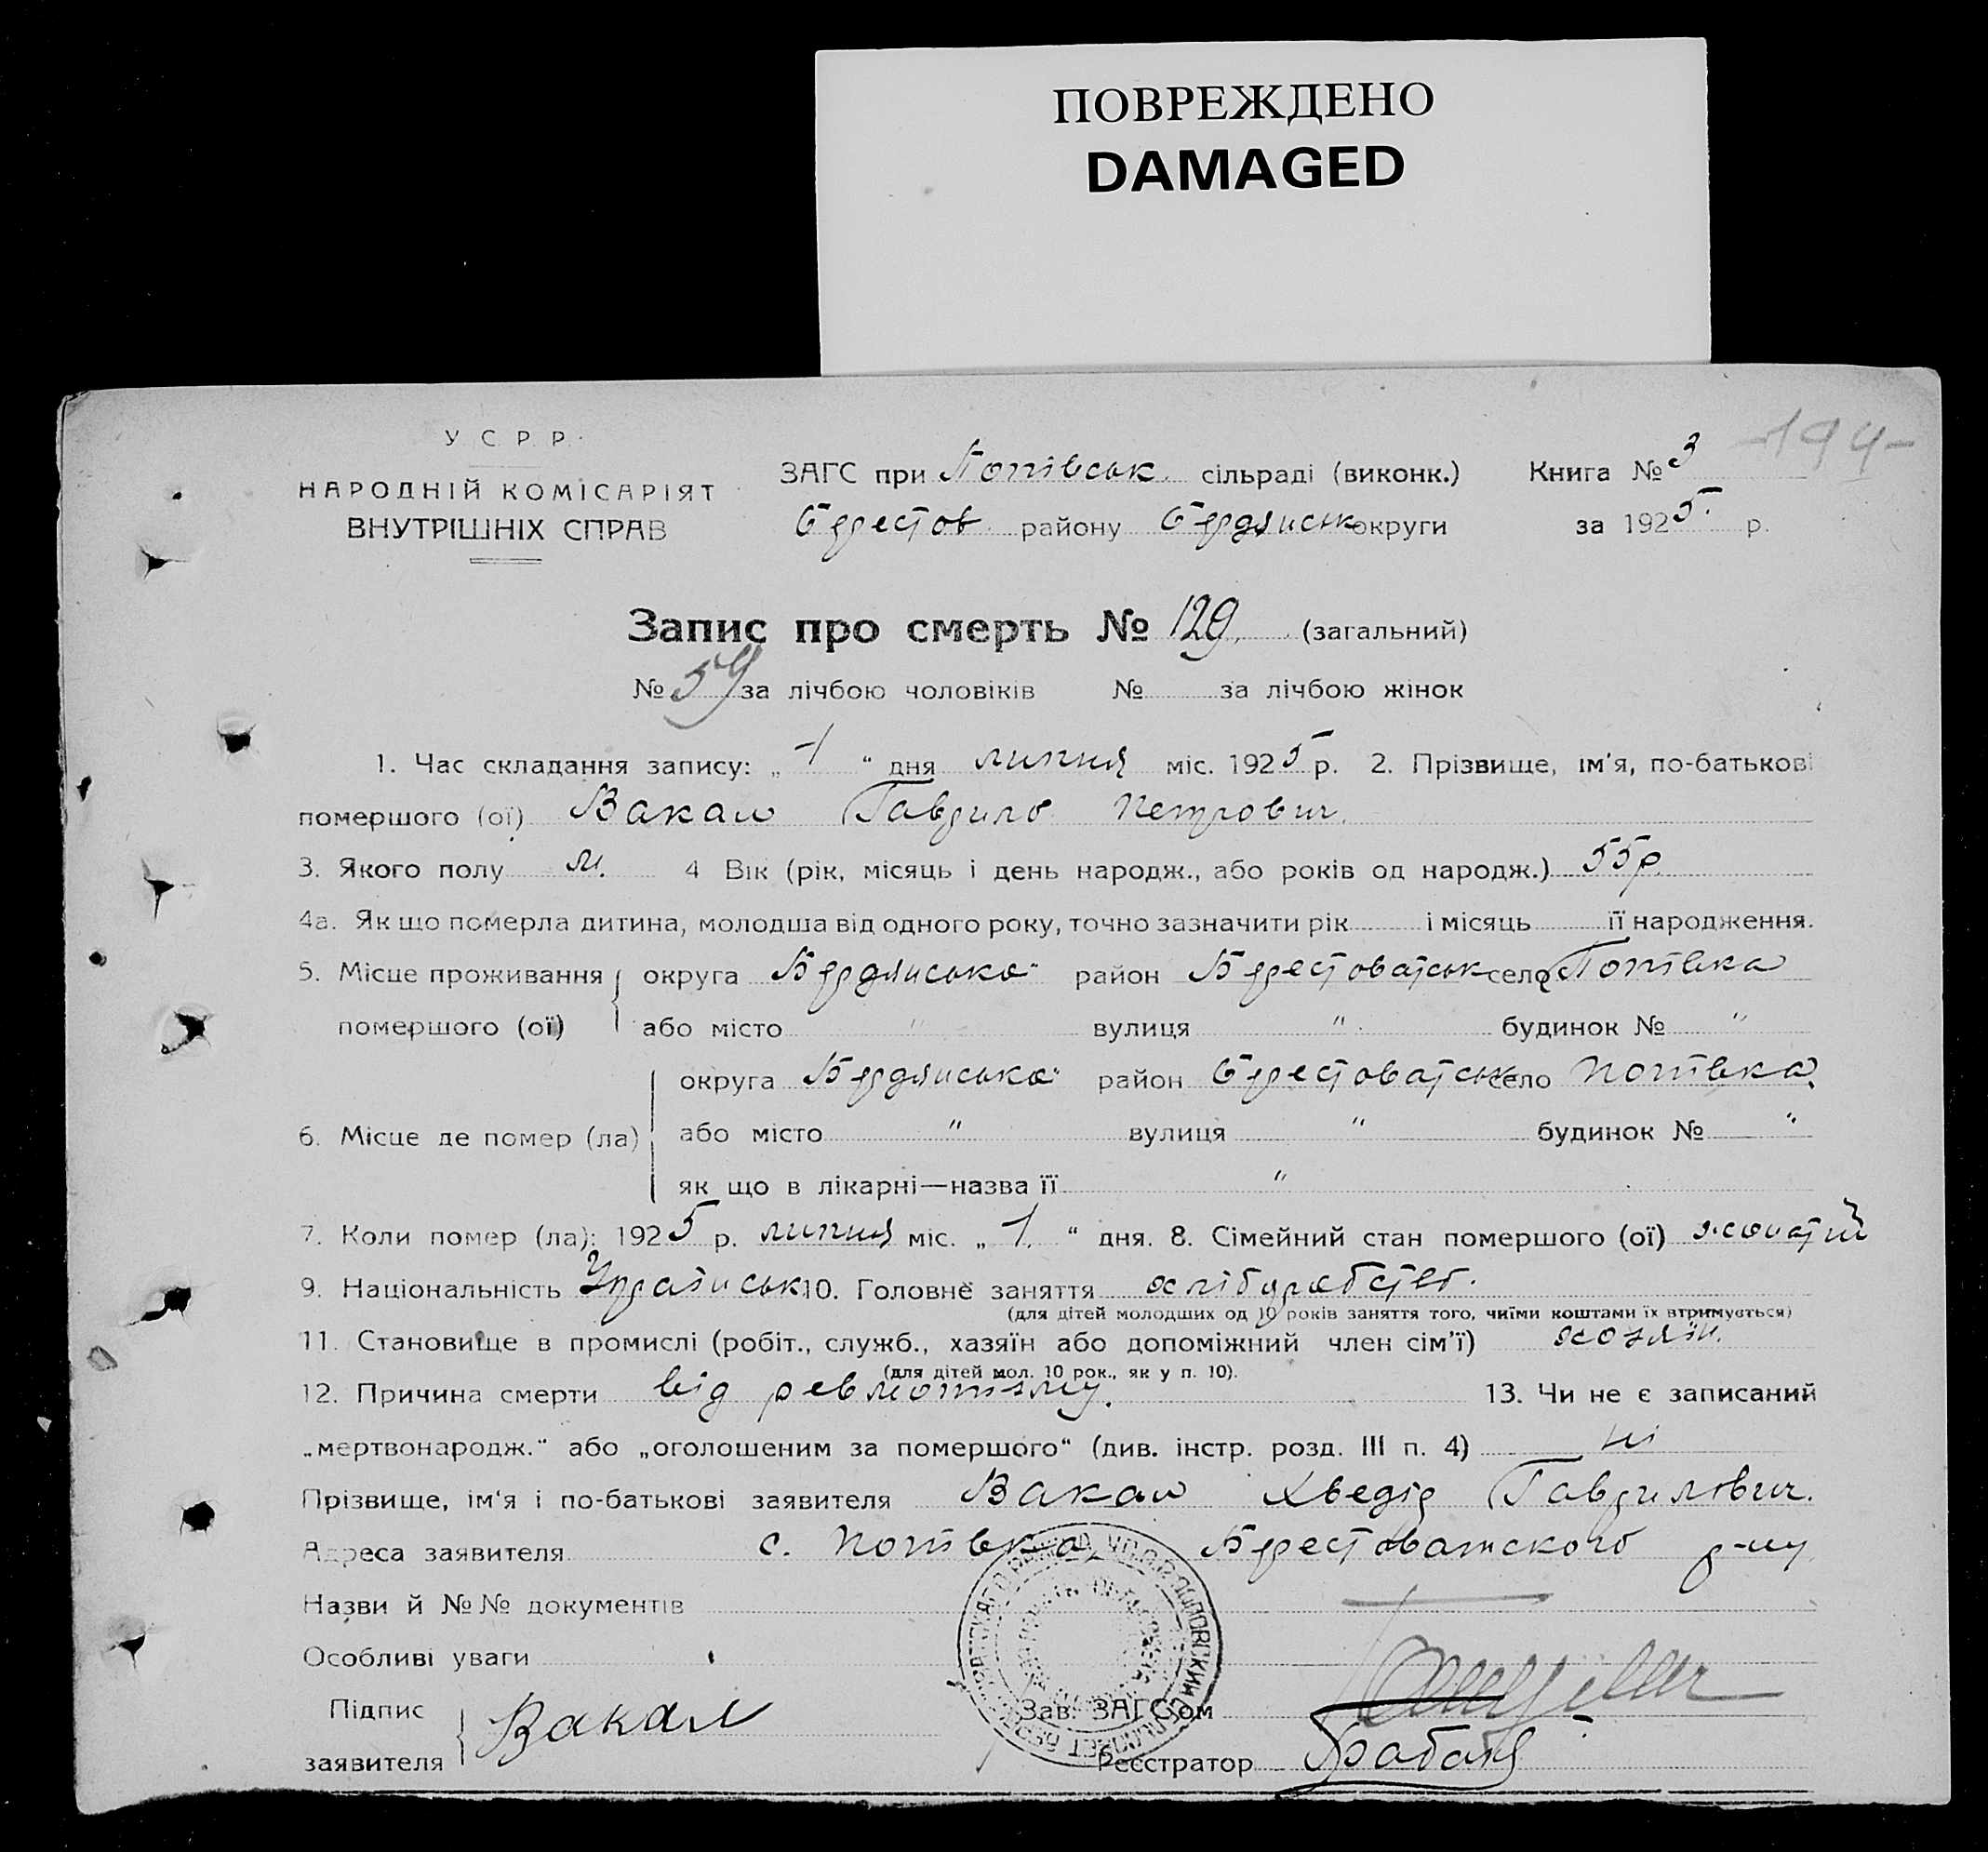 ПОВРЕЖДЕНО
DAMAGED
-194-
У С Р Р.
НАРОДНІЙ КОМІСАРІЯТ
ВНУТРІШНІХ СПРАВ
ЗАГС при Попівськ. сільраді (виконк.) Книга № 3
Берестов. району Бердянськ округи за 1925 р.
Запис про смерть № 129. (загальний)
№ 54 за лічбою чоловіків № за лічбою жінок
1. Час складання запису: „1“ дня липня міс. 1925 р. 2. Прізвище, ім'я, по-батькові
помершого (ої) Вакал Гаврило Петрович.
3. Якого полу м. 4 Вік (рік, місяць і день народж., або років од народж.) 55 р.
4а. Як що померла дитина, молодша від одного року, точно зазначити рік і місяць її народження.
5. Місце проживання округа Бердянська район Берестоватськ село Попівка
помершого (ої) або місто " вулиця " будинок № "
округа Бердянська район Берестоватськ село Попівка
6. Місце де помер (ла) або місто " вулиця " будинок № "
як що в лікарні—назва її "
7. Коли помер (ла): 1925 р. липня міс. „1.“ дня. 8. Сімейний стан помершого (ої) жонатий
9. Національність Українськ 10. Головне заняття хліборобств.
(для дітей молодших од 10 років заняття того, чиїми коштами їх втримується)
11. Становище в промислі (робіт., служб., хазяїн або допоміжний член сім'ї) хозяїн.
(для дітей мол. 10 рок., як у п. 10).
12. Причина смерти від ревматизму. 13. Чи не є записаний
„мертвонародж.“ або „оголошеним за помершого“ (див. інстр. розд. III п. 4) ні
Прізвище, ім'я і по-батькові заявителя Вакал Хведір Гаврилович.
Адреса заявителя с. Попівка, Берестоватского р-ну
Назви й №№ документів
Особливі уваги
Підпис
заявителя Вакал
Зав. ЗАГСом
Реєстратор